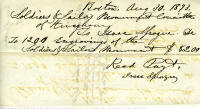 Boston Aug 10. 1871.
Soldiers & Sailors Monument Committee
of
To Isaac Sprague Dr
To 1200 Engravings of the
Soldiers & Sailors Monument $62.00
Recd Payt.
Isaac Sprague